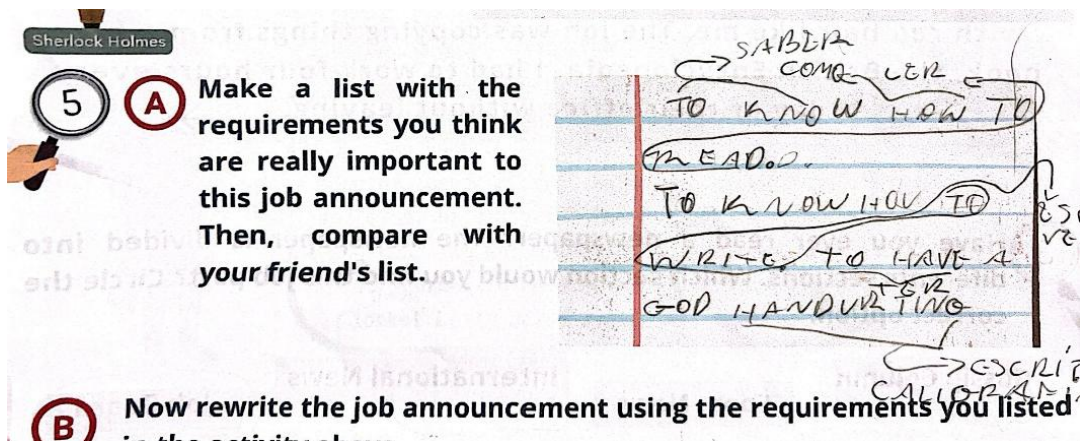 Sherlock Holmes
5
A
Make a list with the
requirements you think
are really important to
this job announcement.
Then, compare with
your friend's list.
SABER
COMO LER
TO KNOW HOW TO
READ.
TO KNOW HOW TO
WRITE. TO HAVE A
TER
GOD HANDURTING
B
Now rewrite the job announcement using the requirements you listed